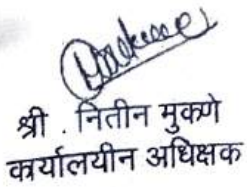 श्री . नितीन मुकणे
कार्यालयीन अधिक्षक